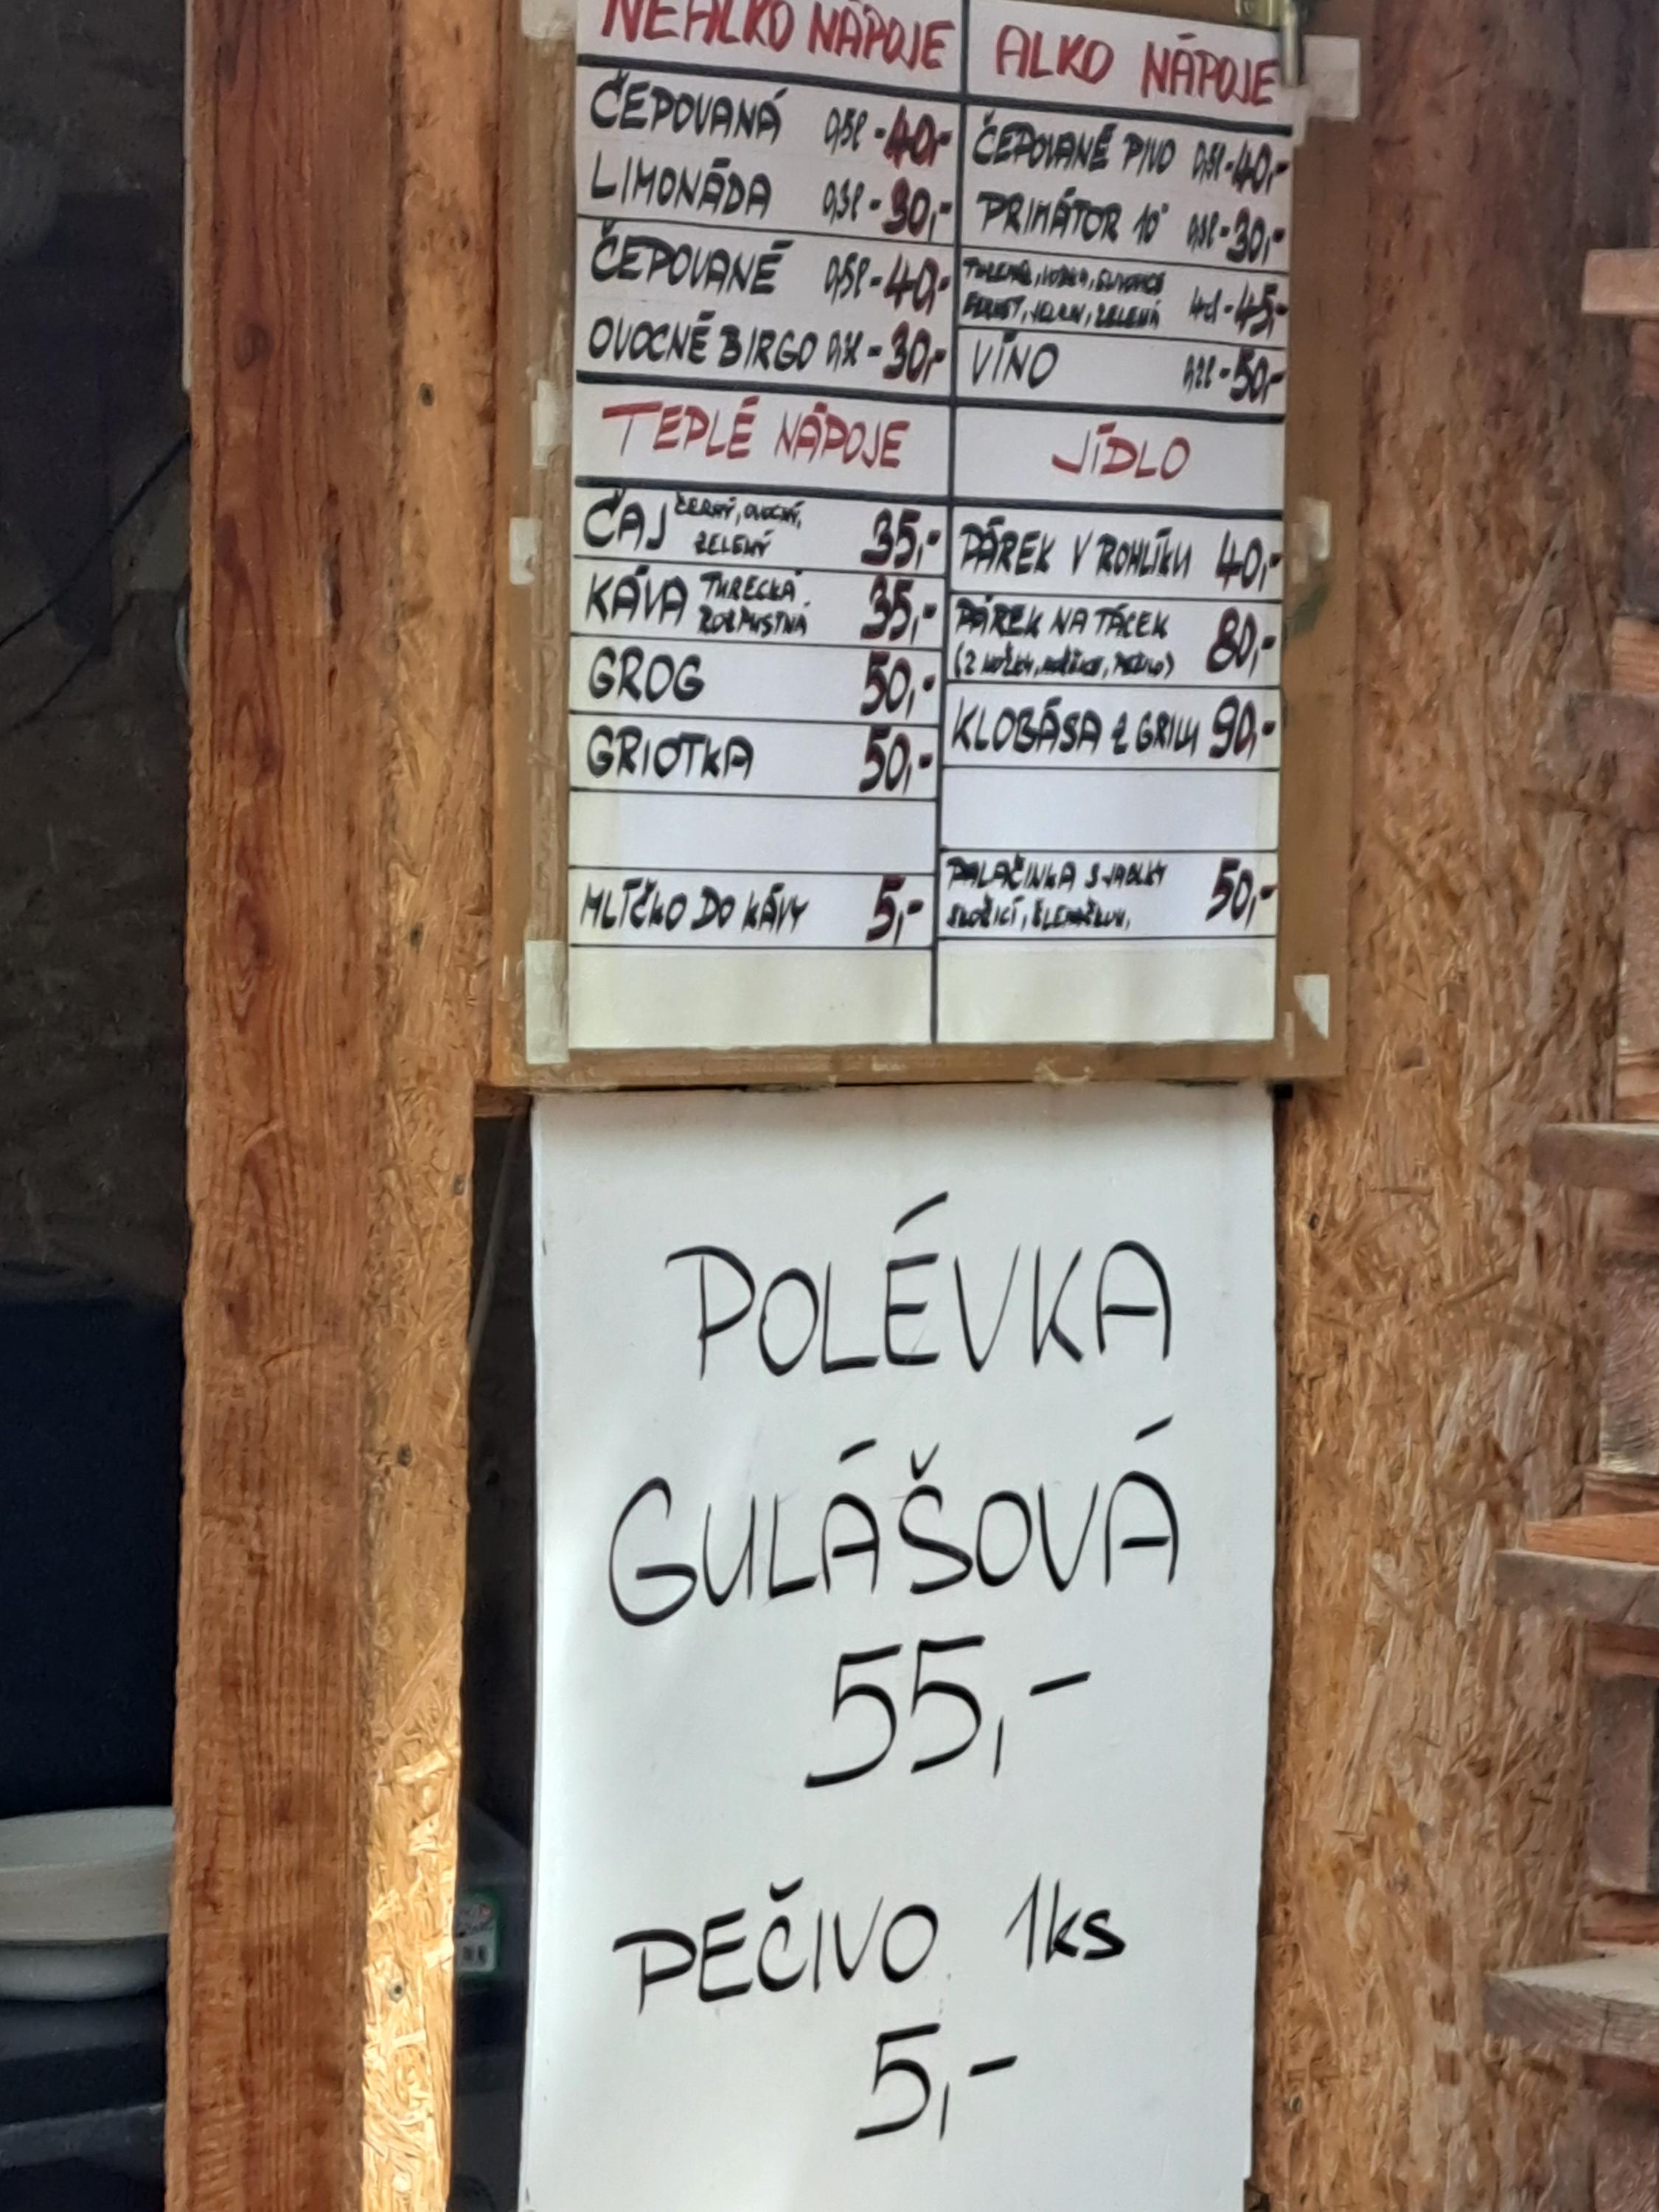 NEALKO NÁPOJE
ČEPOVANÁ 0,5l - 40,-
LIMONÁDA 0,3l - 30,-
ČEPOVANÉ 0,5l - 40,-
OVOCNÉ BIRGO 0,3l - 30,-
ALKO NÁPOJE
ČEPOVANÉ PIVO 0,5l - 40,-
PRIMÁTOR 10° 0,3l - 30,-
TUZEMÁK, VODKA, SLIVOVICE
FERNET, ZELENÁ 4cl - 45,-
VÍNO 0,2l - 50,-
TEPLÉ NÁPOJE
ČAJ ČERNÝ, OVOCNÝ,
ZELENÝ 35,-
KÁVA TURECKÁ
ROZPUSTNÁ 35,-
GROG 50,-
GRIOTKA 50,-
MLÍČKO DO KÁVY 5,-
JÍDLO
PÁREK V ROHLÍKU 40,-
PÁREK NA TÁCEK 80,-
(2 NOŽKY, HOŘČICE, PEČIVO)
KLOBÁSA Z GRILU 90,-
PALAČINKA S JABLKY 50,-
SKOŘICÍ, ŠLEHAČKOU,
POLÉVKA
GULÁŠOVÁ
55,-
PEČIVO 1ks
5,-